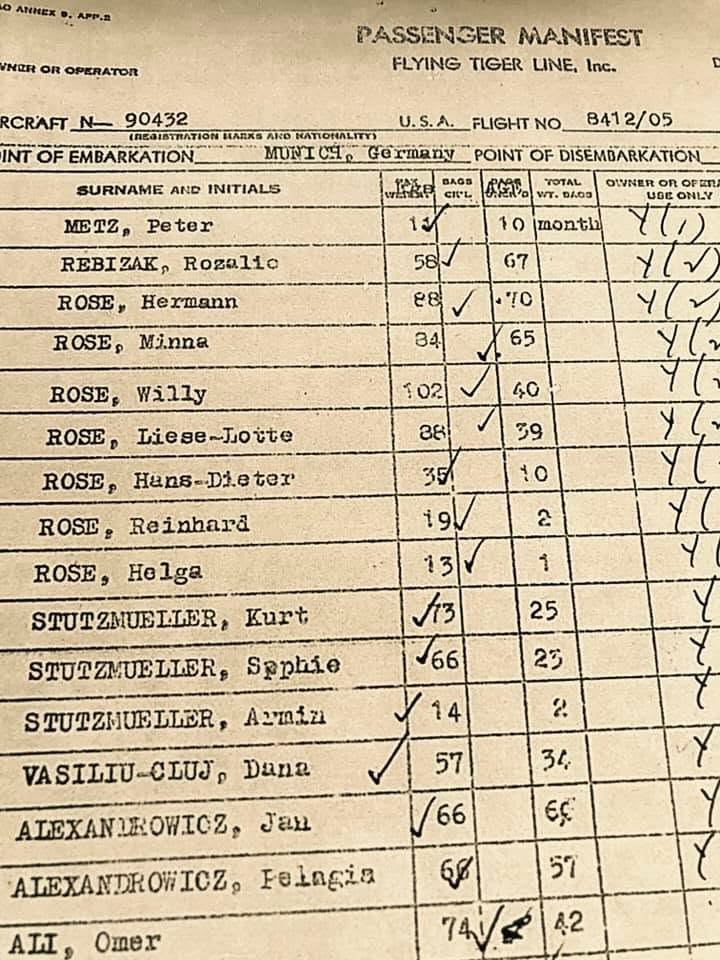 AO ANNEX 9. APP.2
PASSENGER MANIFEST
WNER OR OPERATOR
FLYING TIGER LINE, Inc.
RCRAFT N— 90432 U.S.A. FLIGHT NO 8412/05
(REGISTRATION MARKS AND NATIONALITY)
INT OF EMBARKATION MUNICH, Germany POINT OF DISEMBARKATION
SURNAME AND INITIALS BAGS TOTAL WT. BAGS OWNER OR OPERA USE ONLY
METZ, Peter 11 10 month Y (1)
REBIZAK, Rozalie 58 67 Y (2)
ROSE, Hermann 88 70 Y (2)
ROSE, Minna 84 65 Y (2
ROSE, Willy 102 40 Y (2
ROSE, Liese-Lotte 88 39 Y (2
ROSE, Hans-Dieter 35 10 Y (
ROSE, Reinhard 19 2 Y (
ROSE, Helga 13 1 Y (
STUTZMUELLER, Kurt 73 25 Y
STUTZMUELLER, Sophie 66 23 Y
STUTZMUELLER, Armin 14 2 Y
VASILIU-CLUJ, Dana 57 34 Y
ALEXANDROWICZ, Jan 66 Y
ALEXANDROWICZ, Pelagia 66 57 Y
ALI, Omer 74 42